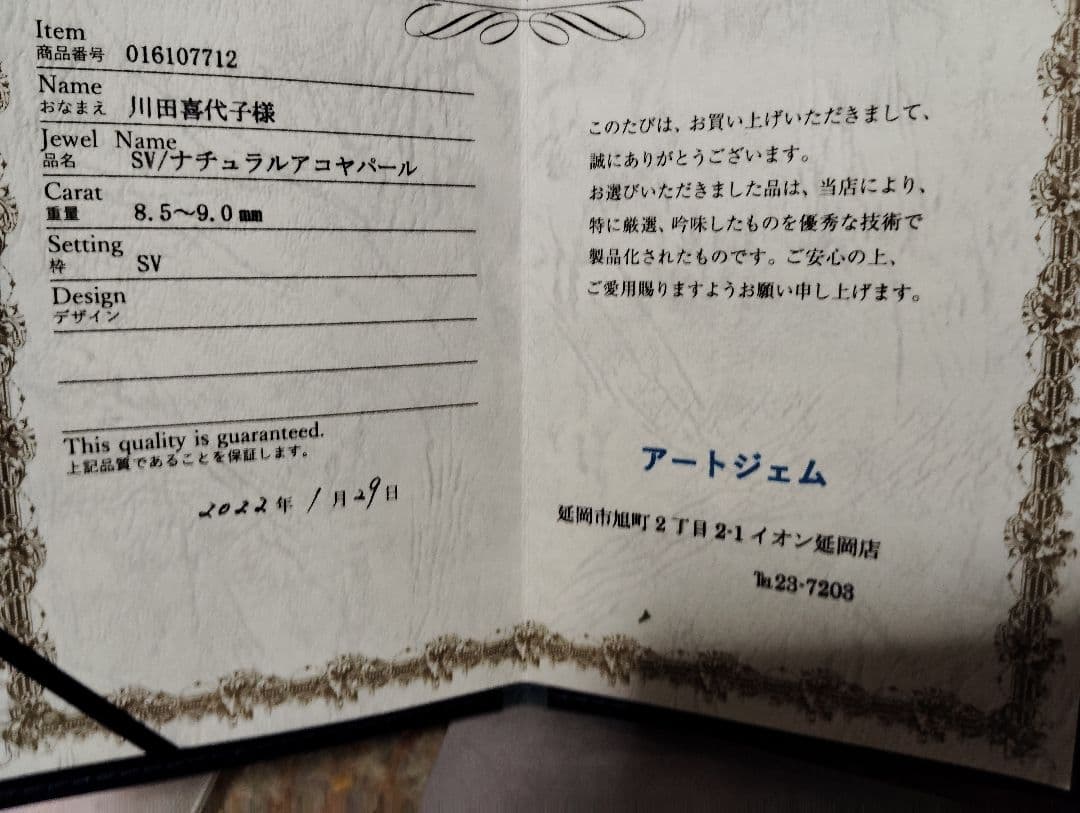 Item
商品番号 016107712
Name
おなまえ 川田喜代子様
Jewel Name
品名 SV/ナチュラルアコヤパール
Carat
重量 8.5〜9.0㎜
Setting
枠 SV
Design
デザイン
This quality is guaranteed.
上記品質であることを保証します。
2022年 1月29日
このたびは、お買い上げいただきまして、
誠にありがとうございます。
お選びいただきました品は、当店により、
特に厳選、吟味したものを優秀な技術で
製品化されたものです。ご安心の上、
ご愛用賜りますようお願い申し上げます。
アートジェム
延岡市旭町2丁目2-1イオン延岡店
℡23-7203